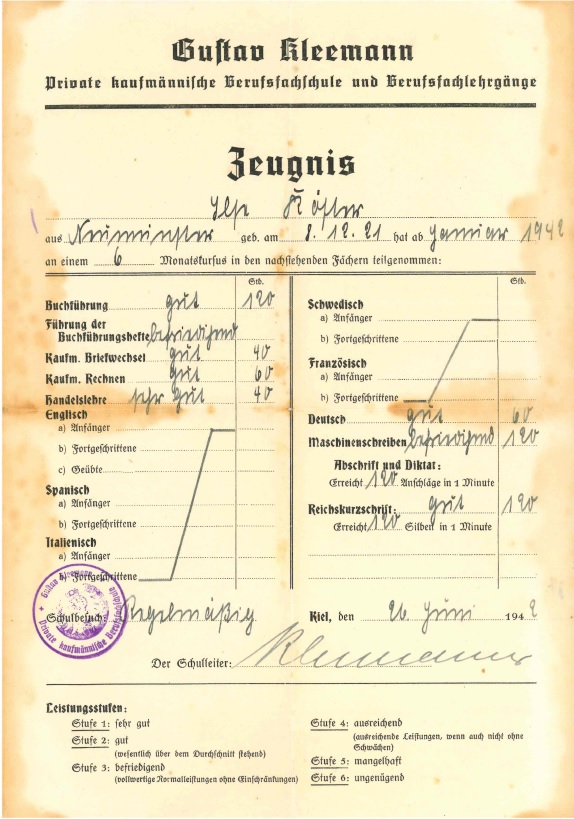 Gustav Kleemann
Private kaufmännische Berufsfachschule und Berufsfachlehrgänge
Zeugnis
Ilse Köster
aus Neumünster geb. am 8.12.21 hat ab Januar 1942
an einem 6 Monatskursus in den nachstehenden Fächern teilgenommen:
Std.
Buchführung gut 120
Führung der
Buchführungshefte befriedigend
Kaufm. Briefwechsel gut 40
Kaufm. Rechnen gut 60
Handelslehre sehr gut 40
Englisch
a) Anfänger
b) Fortgeschrittene
c) Geübte
Spanisch
a) Anfänger
b) Fortgeschrittene
Italienisch
a) Anfänger
b) Fortgeschrittene
Std.
Schwedisch
a) Anfänger
b) Fortgeschrittene
Französisch
a) Anfänger
b) Fortgeschrittene
Deutsch gut 60
Maschinenschreiben befriedigend 120
Abschrift und Diktat:
Erreicht 120 Anschläge in 1 Minute
Reichskurzschrift: gut 120
Erreicht 120 Silben in 1 Minute
Gustav Kleemann
Private kaufmännische
Schulbesuch: Regelmäßig Kiel, den 26 Juni 1942
Der Schulleiter: Kleemann
Leistungsstufen:
Stufe 1: sehr gut
Stufe 2: gut
(wesentlich über dem Durchschnitt stehend)
Stufe 3: befriedigend
(vollwertige Normalleistungen ohne Einschränkungen)
Stufe 4: ausreichend
(ausreichende Leistungen, wenn auch nicht ohne
Schwächen)
Stufe 5: mangelhaft
Stufe 6: ungenügend